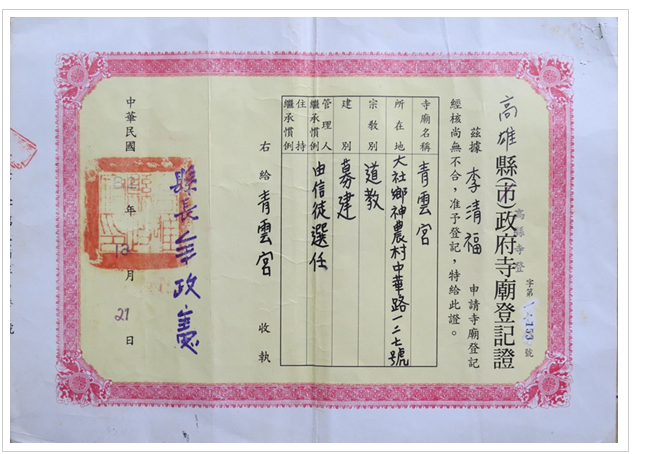 高雄縣(市)政府寺廟登記證
高縣寺登
字第 號
茲據 李清福 申請寺廟登記
經核尚無不合，准予登記，特給此證。
寺廟名稱 青雲宮
所在地 大社鄉神農村中華路一二七號
宗教別 道教
建別 募建
管理人繼承慣例 由信徒選任
住持繼承慣例
右給 青雲宮 收執
縣長余政憲
中華民國 82 年 12 月 21 日